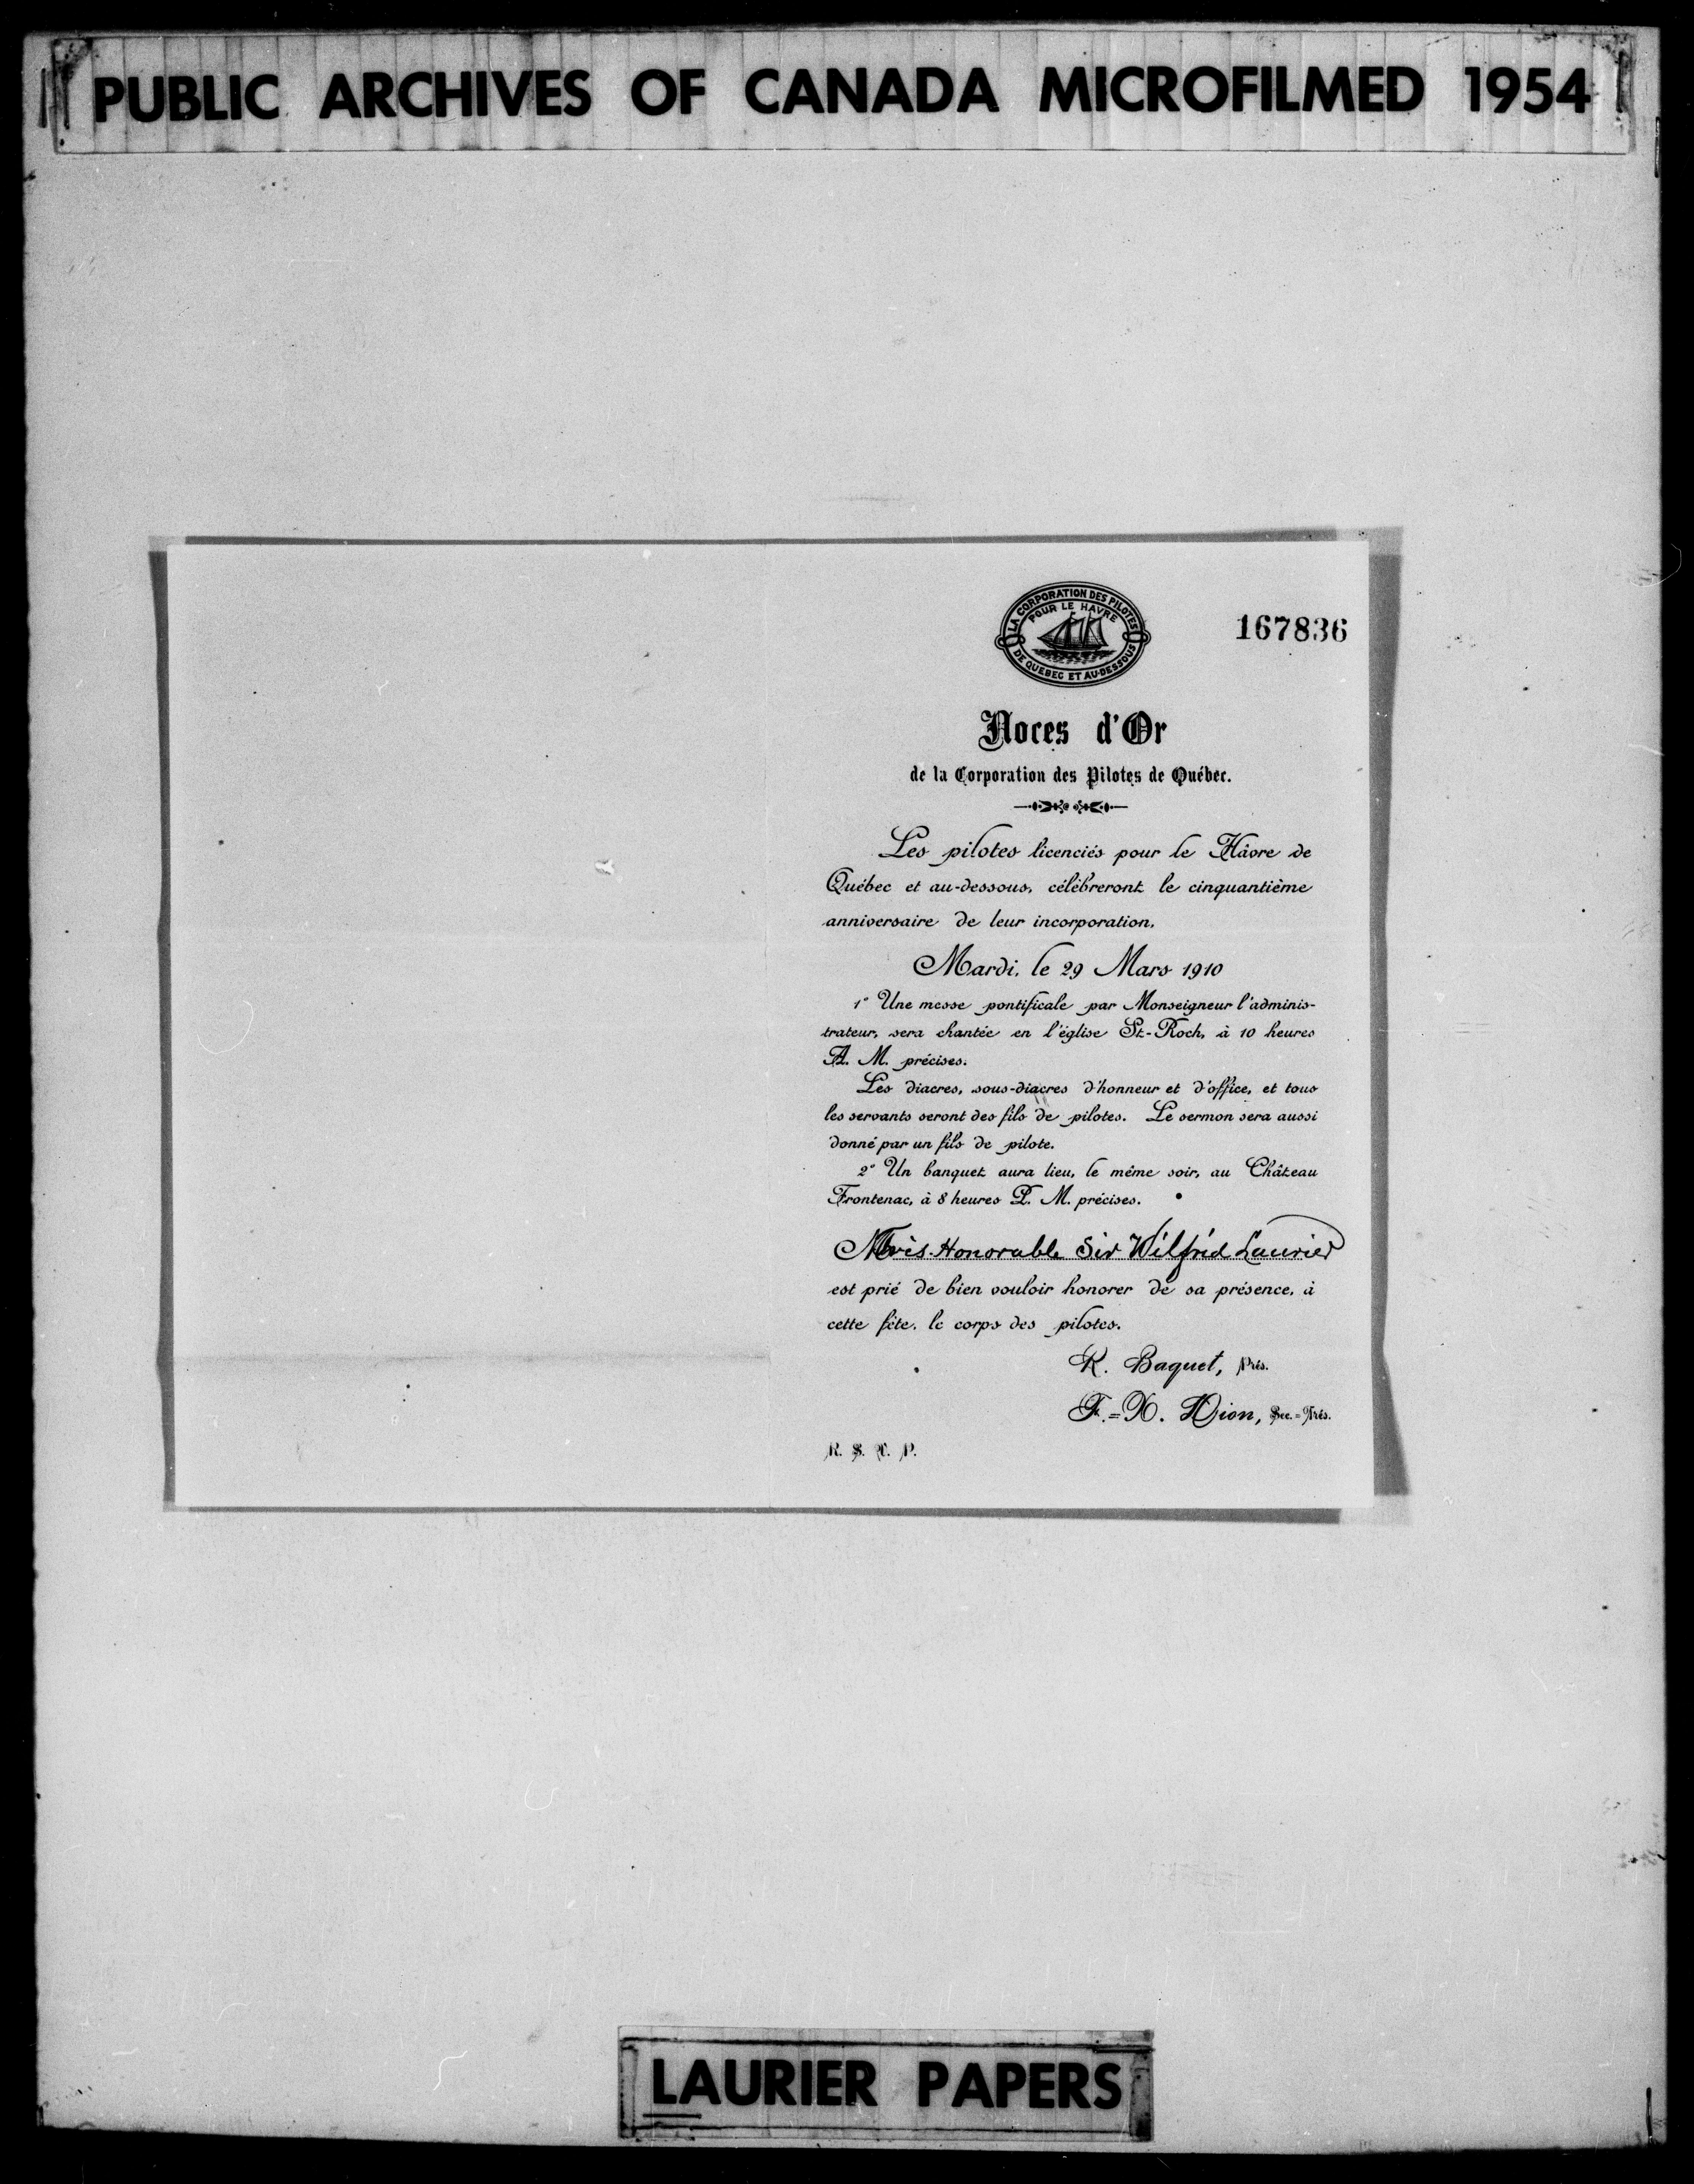 PUBLIC ARCHIVES OF CANADA MICROFILMED 1954
LA CORPORATION DES PILOTES
POUR LE HAVRE
DE QUEBEC ET AU-DESSOUS
167836
Noces d'Or
de la Corporation des Pilotes de Québec.
Les pilotes licenciés pour le Hâvre de
Québec et au-dessous, célèbreront le cinquantième
anniversaire de leur incorporation,
Mardi, le 29 Mars 1910
1° Une messe pontificale par Monseigneur l'adminis-
trateur, sera chantée en l'église St-Roch, à 10 heures
A. M. précises.
Les diacres, sous-diacres d'honneur et d'office, et tous
les servants seront des fils de pilotes. Le sermon sera aussi
donné par un fils de pilote.
2° Un banquet aura lieu, le même soir, au Château
Frontenac, à 8 heures P. M. précises.
Honorable Sir Wilfrid Laurier
est prié de bien vouloir honorer de sa présence, à
cette fête, le corps des pilotes.
R. Baquet, Prés.
F.-X. Dion, Sec.-Trés.
R. S. V. P.
LAURIER PAPERS